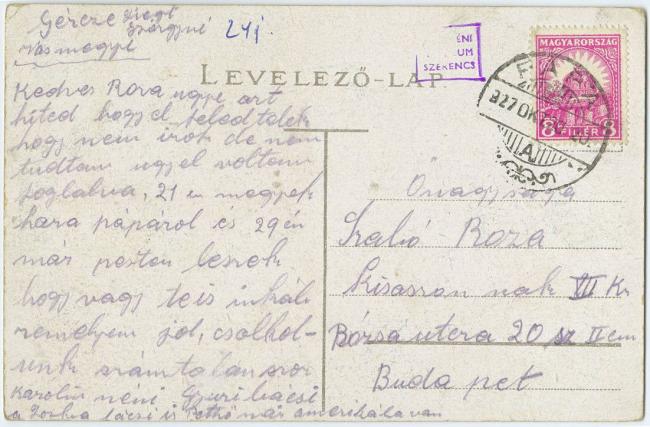 Gércze
Vasmegye
24j.
ÉNI
UM
SZERENCS
LEVELEZŐ-LAP
MAGYARORSZÁG
8 FILLÉR 8
927 OK
A
Kedves Roza ugye azt
hited hogy el feledtelek
hogy nem irok de nem
tudtam ugyel voltam
foglalva, 21 en megyek
hara pápárol és 29 én
már pesten leszek
hogy vagy te is inkáb
remelyem jol, csolkol-
unk számtalanszor
Karolin néni Gyuri bácsi
a Zoska lácsi is Pethő már amerikába van
Önagysága
Szabó Roza
kisasszon nak VII Ker
Bózsá utcza 20 sz II em
Buda pet